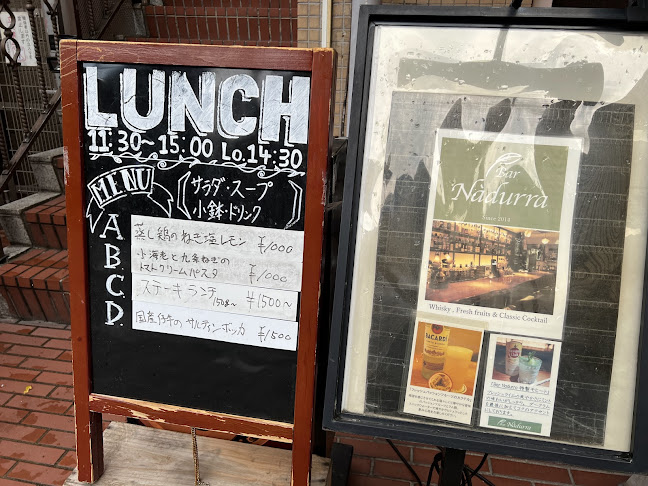 LUNCH
11:30~15:00 Lo.14:30
MENU
サラダ・スープ
小鉢・ドリンク
A. 蒸し鶏のねぎ塩レモン ¥1000
B. 小海老と九条ねぎの
トマトクリームパスタ ¥1000
C. ステーキランチ 150g~ ¥1500~
D. 国産仔牛のサルティンボッカ ¥1500
Bar
Nàdurra
Since 2014
Whisky, Fresh fruits & Classic Cocktail
BACARDI
Nadurra